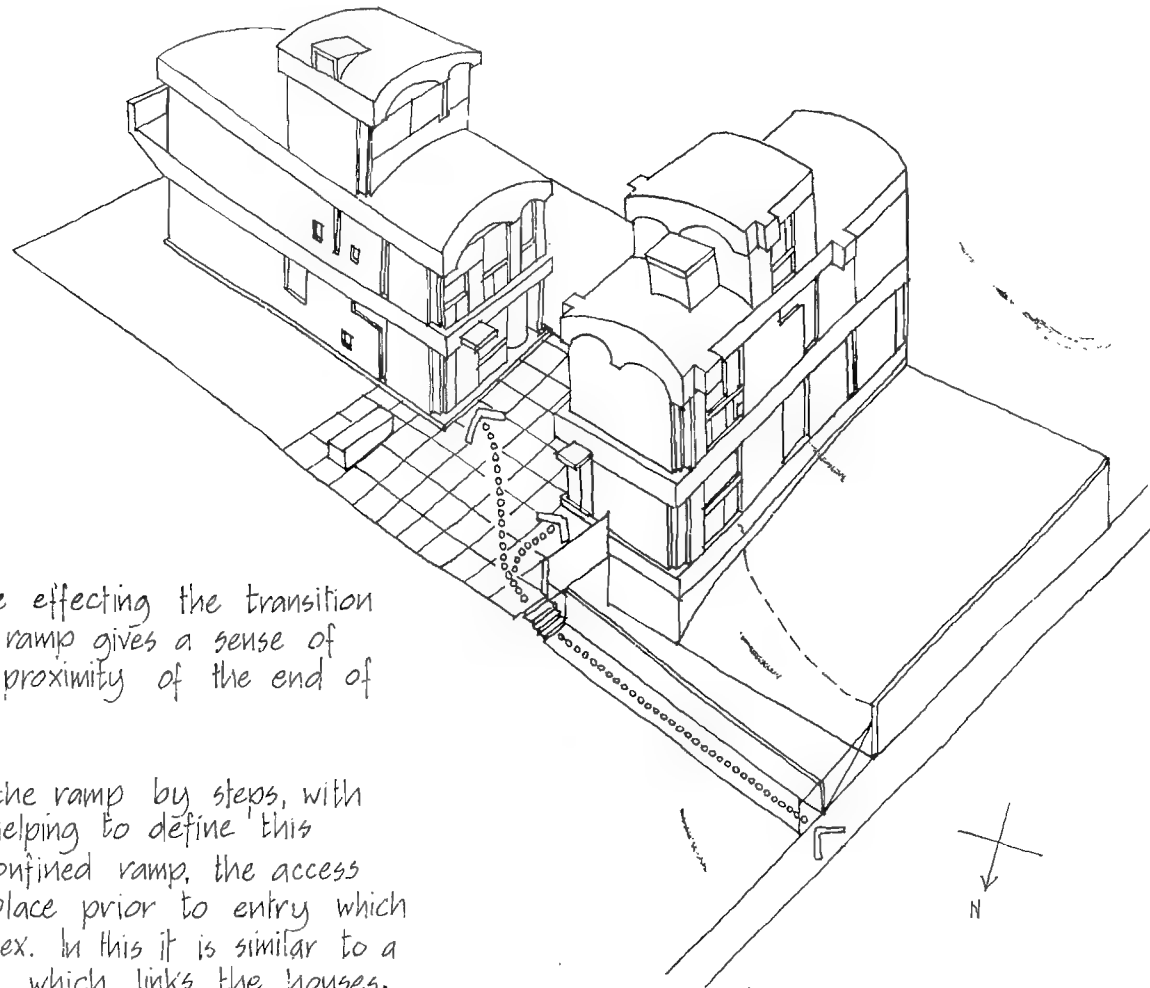 e effecting the transition
ramp gives a sense of
proximity of the end of
the ramp by steps, with
elping to define this
onfined ramp, the access
place prior to entry which
ex. In this it is similar to a
which links the houses.
N